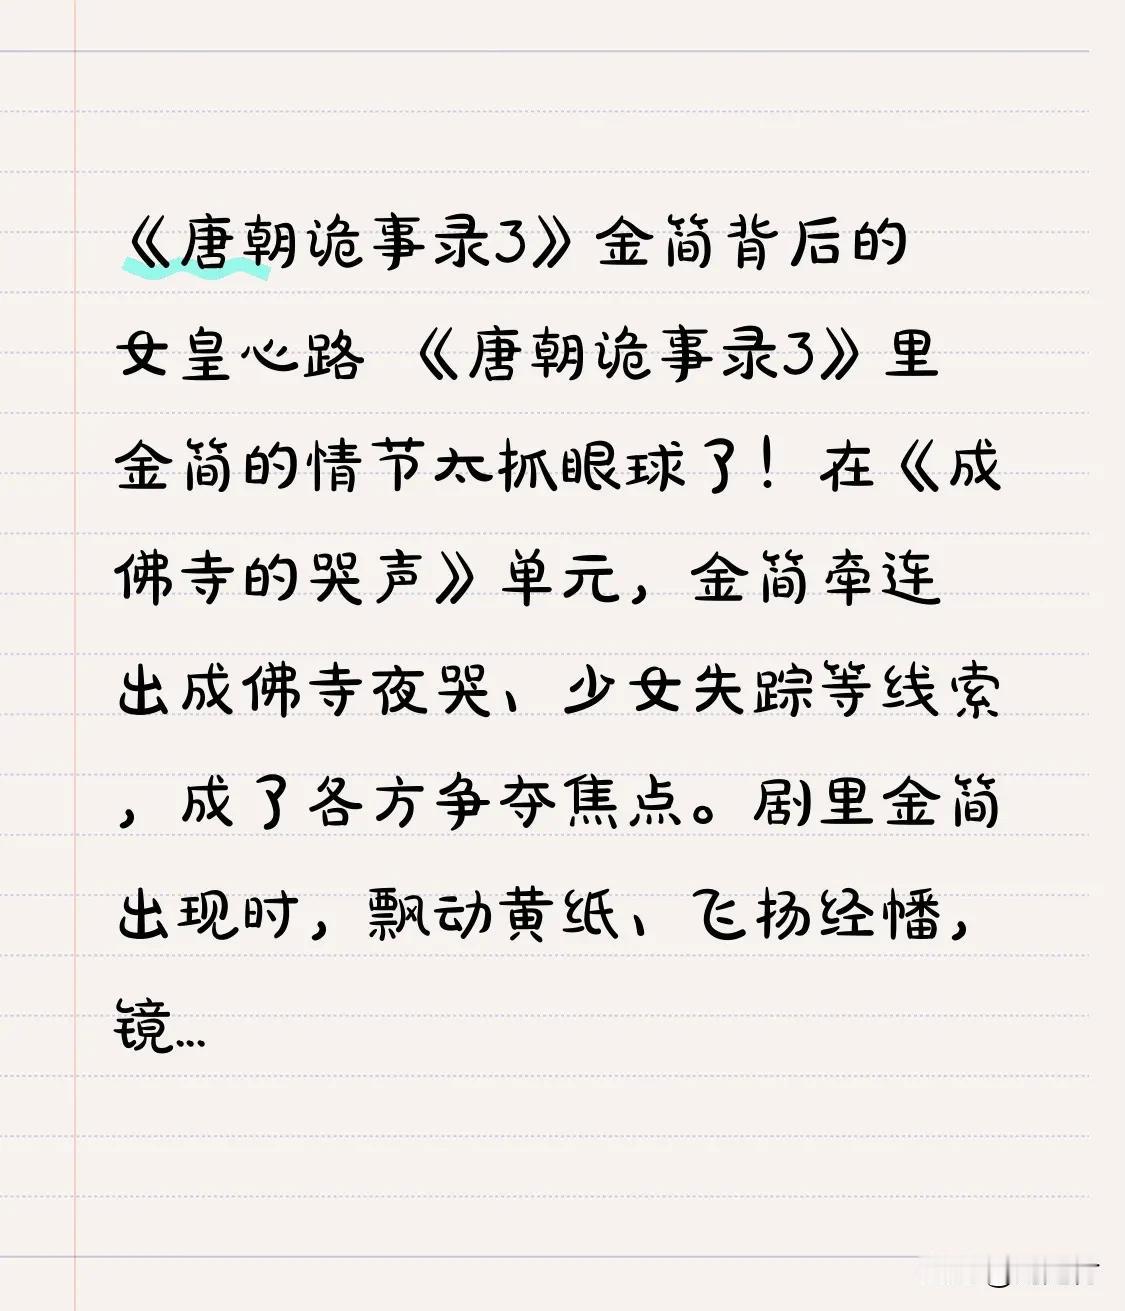 《唐朝诡事录3》金简背后的
女皇心路 《唐朝诡事录3》里
金简的情节太抓眼球了！在《成
佛寺的哭声》单元，金简牵连
出成佛寺夜哭、少女失踪等线索
，成了各方争夺焦点。剧里金简
出现时，飘动黄纸、飞扬经幡，
镜...